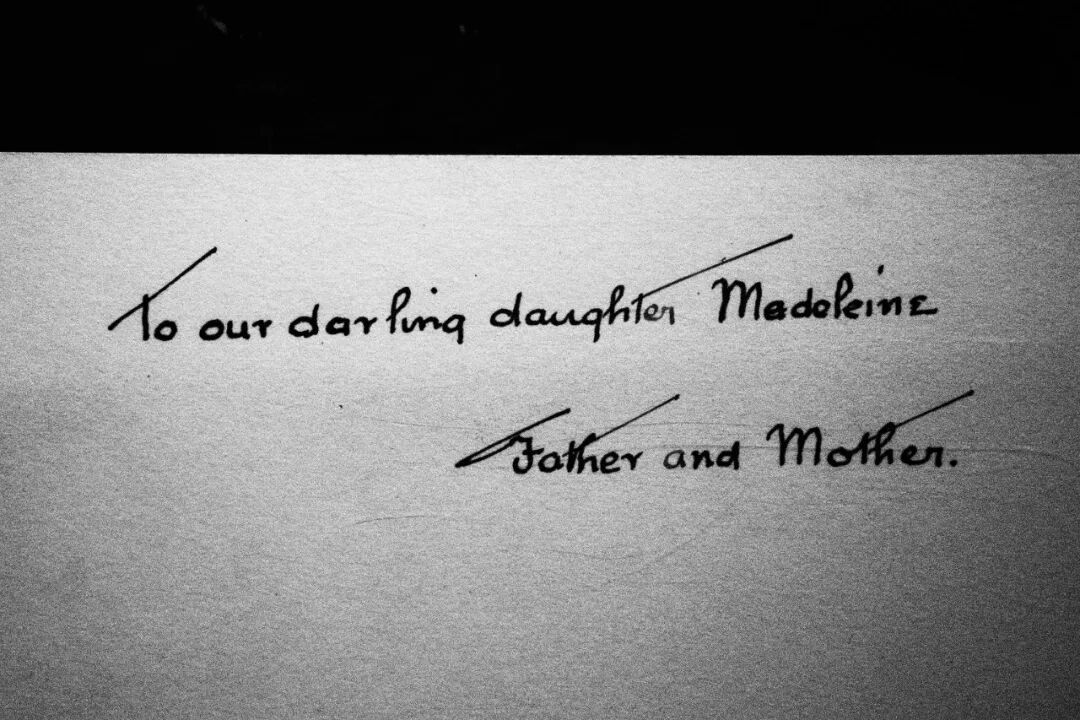 To our darling daughter Madeleine
Father and Mother.